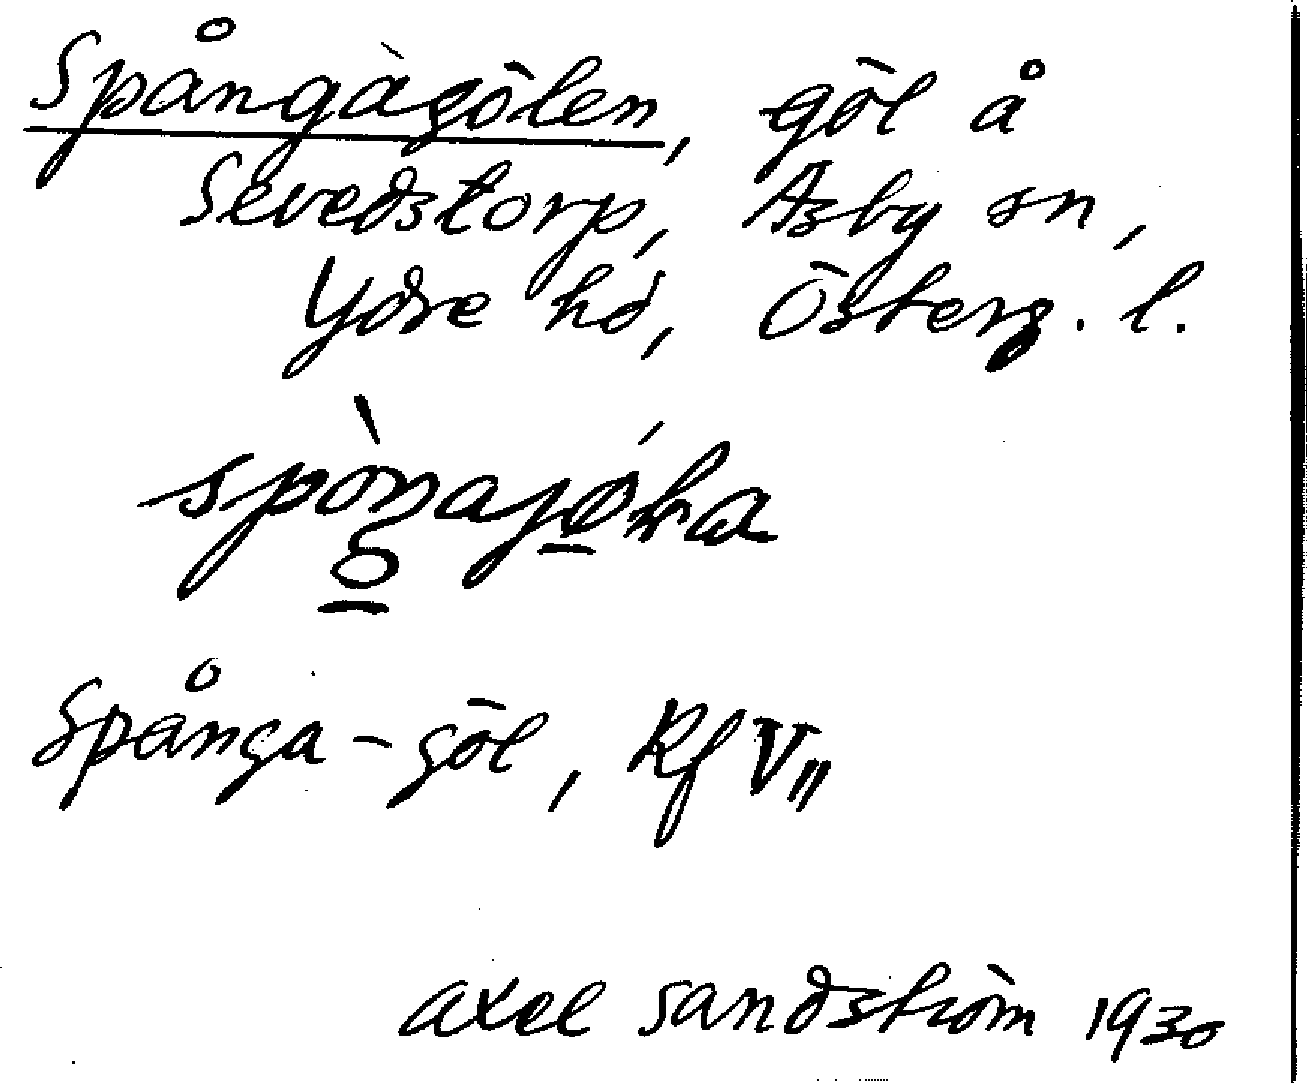 Spångàgölen, göl å
Sevedstorp, Asby sn,
Ydre hd, Österg. l.
Spånga-göl, Rf V
axel sandström 1930